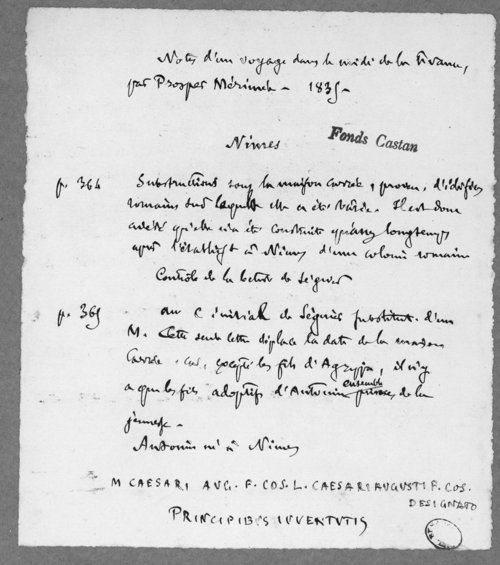 Notes d'un voyage dans le midi de la France,
par Prosper Mérimée - 1835 -
Nimes
Fonds Castan
p. 364 Substructions sous la maison carrée, proven. d'édifices
romains sur laquelle elle a été bâtie. Il est donc
avéré qu'elle n'a été construite qu'assez longtemps
après l'établisst à Nimes d'une colonie romaine
Contrôle de la lecture de Séguier
p. 365 au C initial de Séguier substitut. d'un
M. Cette seule lettre déplace la date de la maison
Carrée. car, excepté les fils d'Agrippa, il n'y
a que les fils adoptifs d'Antonin ensemble princes de la
jeunesse -
Antonin né à Nimes
M CAESARI AUG. F. COS. L. CAESARI AUGUSTI F. COS.
DESIGNATO
PRINCIPIBUS IUVENTUTIS